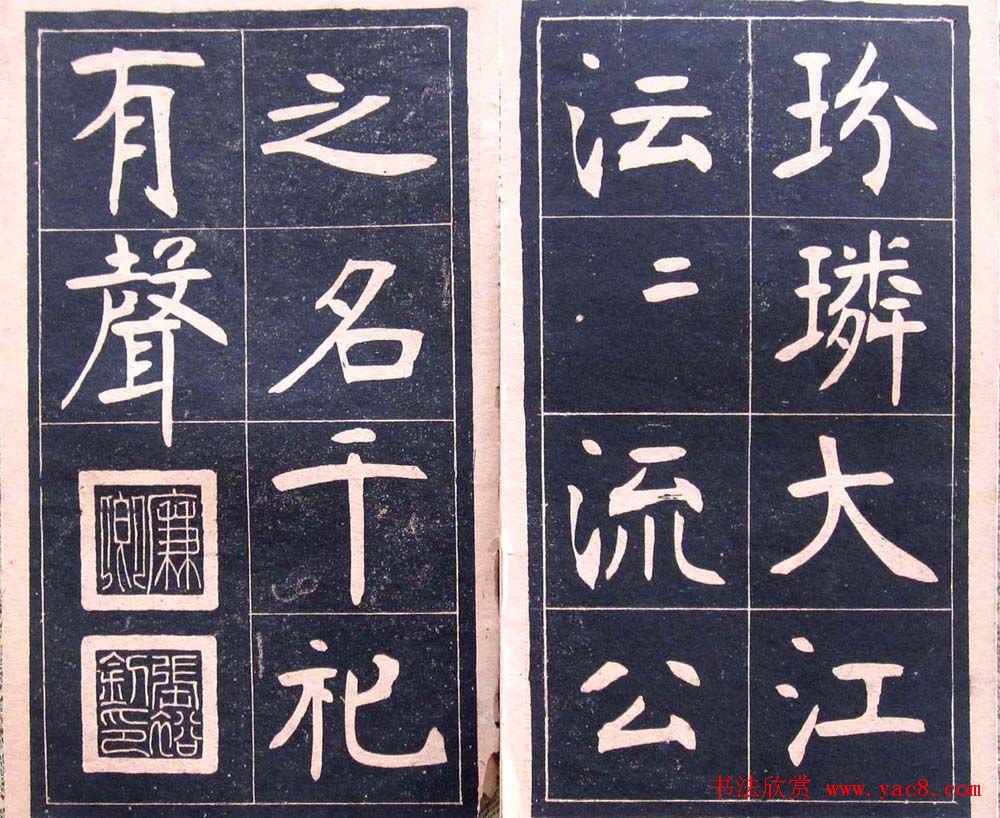 玢璘大江
沄二流公
之名千祀
有聲
廉卿
張裕釗印
书法欣赏 www.yac8.com